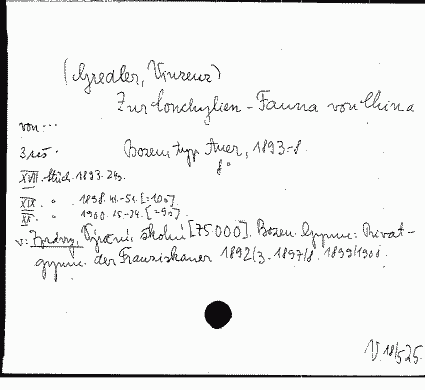 (Gredler, Vinzenz)
Zur Conchylien-Fauna von China
von...
3 res. Bozen typ Auer, 1893-8
8°
XVII. Stück. 1893. 24s.
XIX. " 1898. 41.-51. [=10s]
XX. " 1900. 15.-24. [=9s]
v: Zprávy, Výroční, školní [75000]. Bozen. Gymn: Privat-
gymn. der Franziskaner 1892/3. 1897/8. 1899/1900.
V. 18/525.